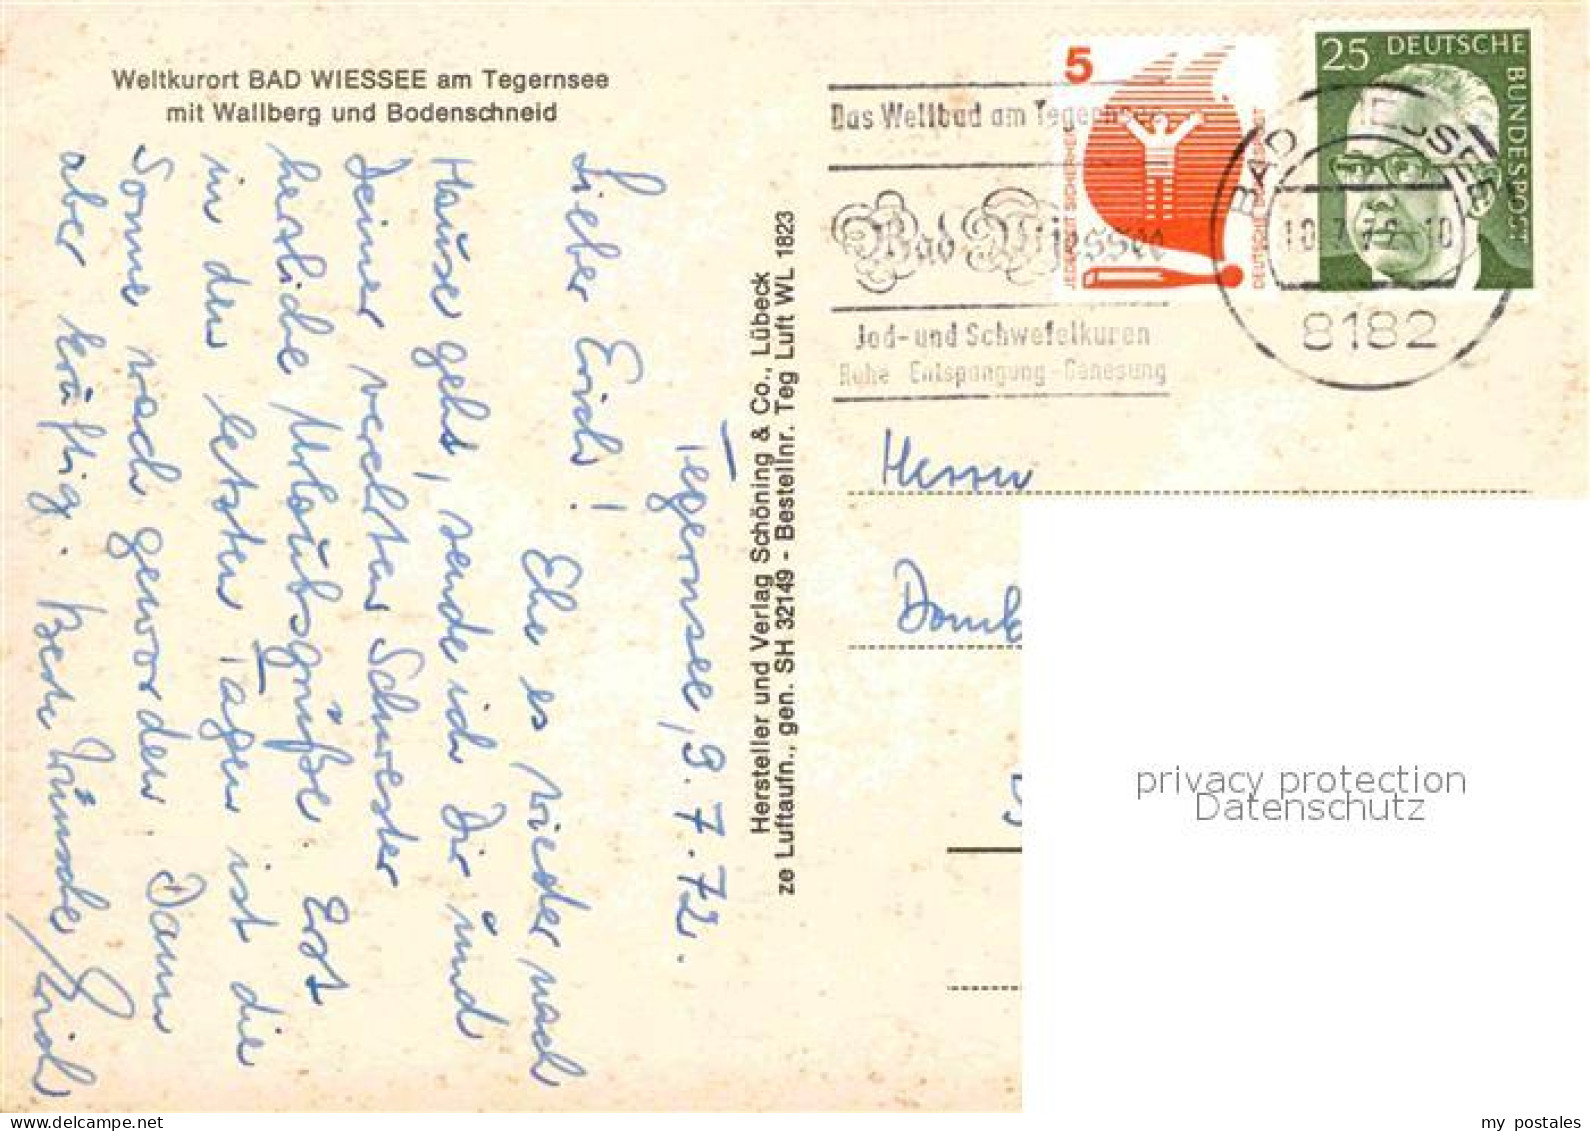 Weltkurort BAD WIESSEE am Tegernsee
mit Wallberg und Bodenschneid
Tegernsee, 9.7.72.
Lieber Erich!
Ehe es wieder nach
Hause geht, sende ich Dir und
Deiner verehrten Schwester
herzliche Urlaubsgrüße. Erst
in den letzten Tagen ist die
Sonne wach geworden. Dann
aber kräftig. Beste Wünsche
Erich
Hersteller und Verlag Schöning & Co., Lübeck
ze Luftaufn., gen. SH 32149 - Bestellnr. Teg Luft WL 1823
Das Weltbad am Tegernsee
Bad Wiessee
Jod- und Schwefelkuren
Ruhe - Entspannung - Genesung
5
JEDERZEIT SICHERHEIT
DEUTSCHE BUNDESPOST
25 DEUTSCHE
BUNDESPOST
BAD WIESSEE
10.7.72-10
8182
Herrn
privacy protection
Datenschutz
my postales